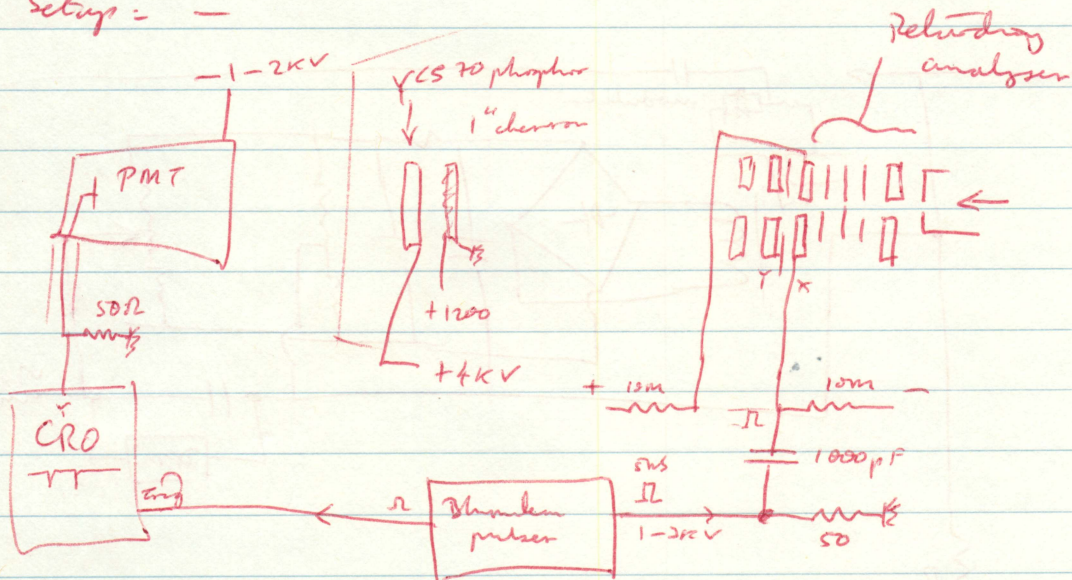 Setup: —
-1-2KV
PMT
50Ω
CRO
Y
trig
CS 70 phosphor
1" chevron
+1200
+4KV
Retarding
analyser
Y X
+ 10M
10M -
1000pF
5ns
1-2KV
50
Blumlein
pulser